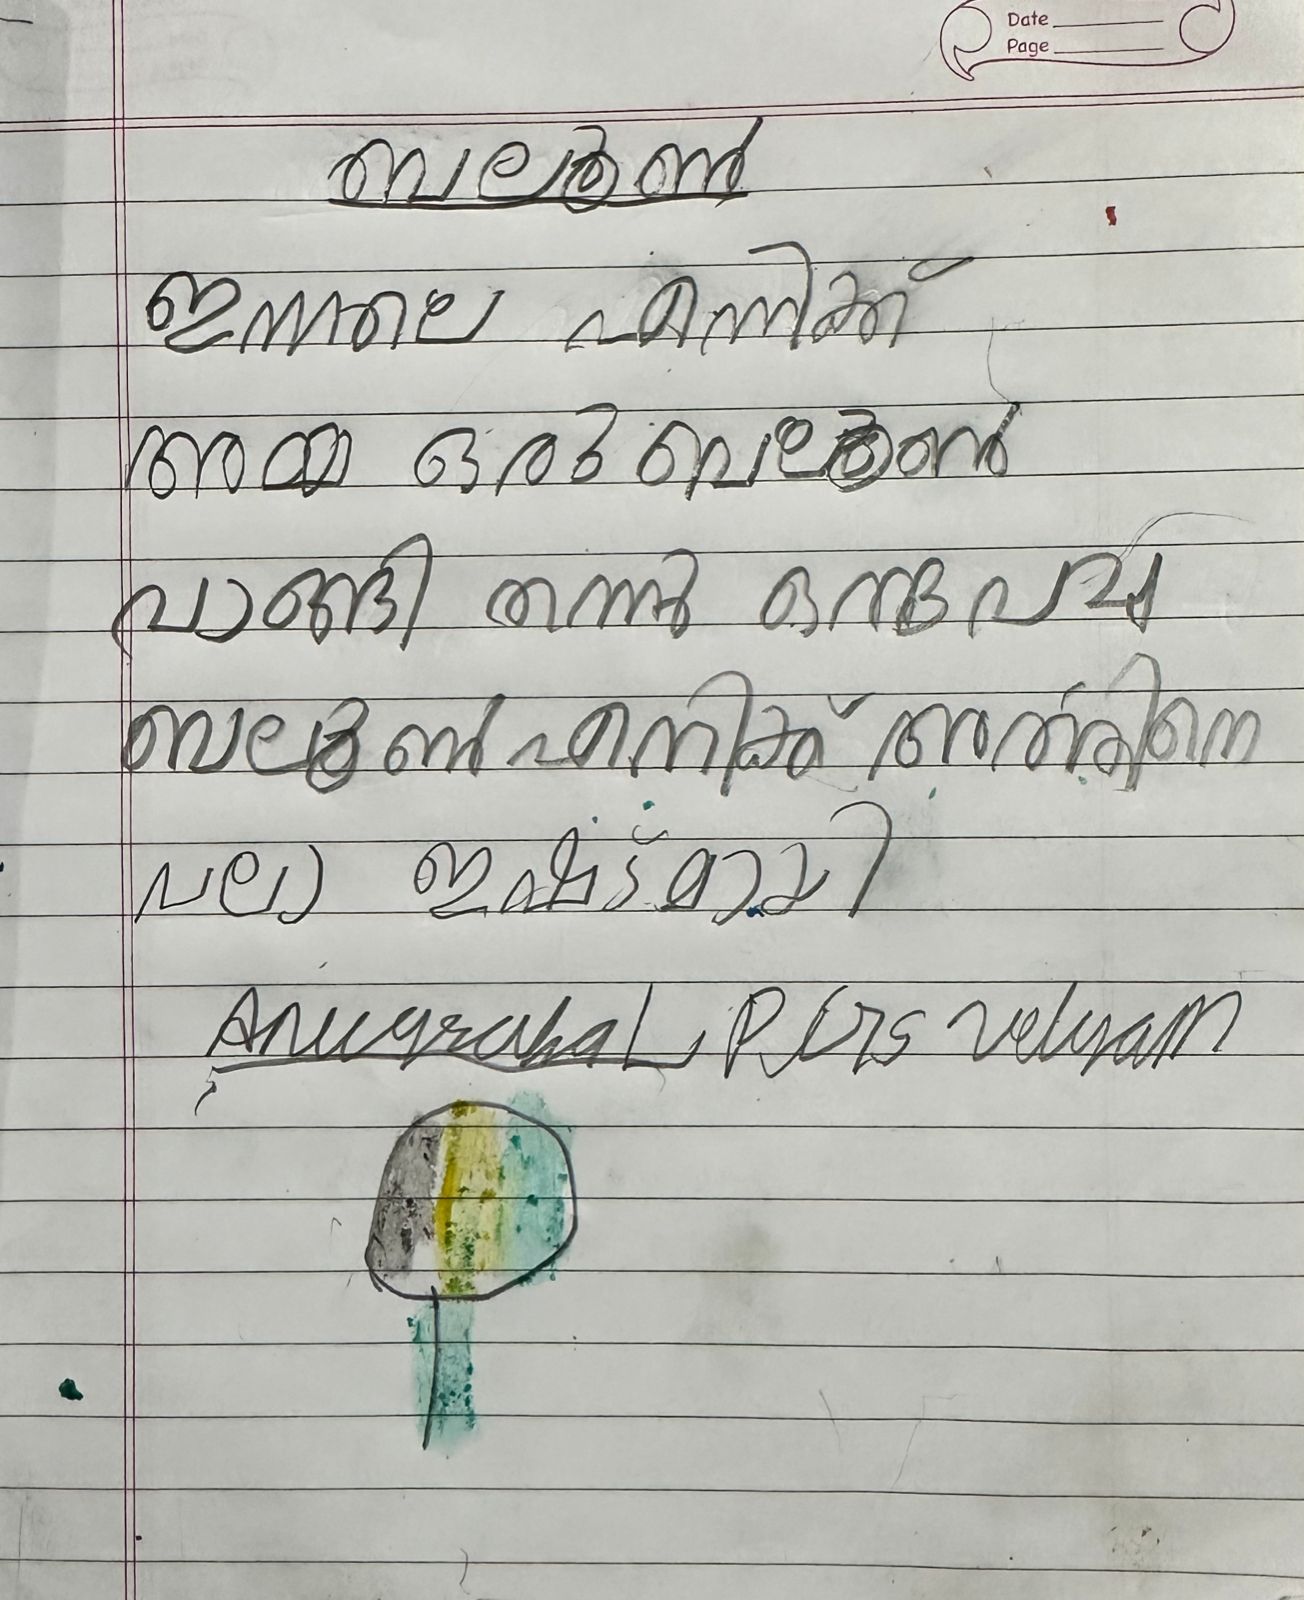 Date
Page
ബലൂൺ
ഇന്നലെ എന്നിക്ക്
അമ്മ ഒരു ബലൂൺ
വാങ്ങി തന്നു ഒന്തു പച്ച
ബലൂൺ എനിക്ക് അതിനെ
വലാ ഇഷ്ട്മായി
Anugraha L P. Glps velyam